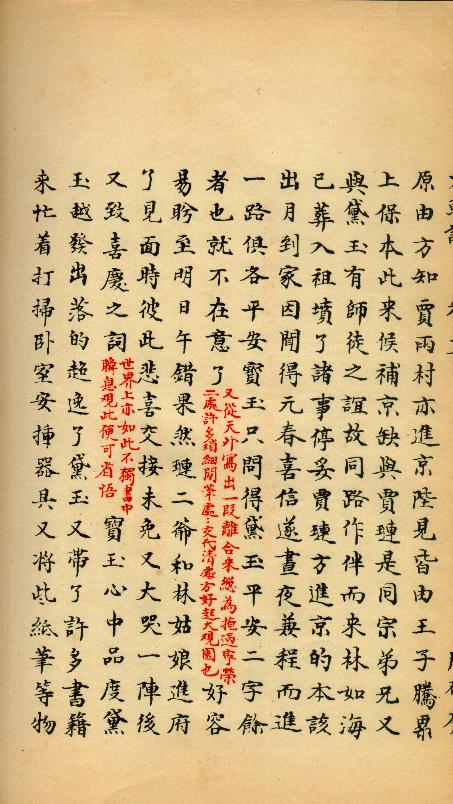 原由方知賈雨村亦進京陛見皆由王子騰累
上保本此来候補京缺與賈璉是同宗弟兄又
與黛玉有師徒之誼故同路作伴而来林如海
已葬入祖墳了諸事停妥賈璉方進京的本該
出月到家因聞得元春喜信遂晝夜兼程而進
一路俱各平安寳玉只問得黛玉平安二字餘
者也就不在意了
又從天外寫出一段離合来縂為掩過寧榮
二處許多瑣細閒筆處:交代清處方好起大觀園也
好容
易盼至明日午錯果然璉二爺和林姑娘進府
了見面時彼此悲喜交接未免又大哭一陣後
又致喜慶之詞
世界上亦如此不獨書中
瞬息現此便可省悟
寳玉心中品度黛
玉越發出落的超逸了黛玉又帶了許多書籍
来忙着打掃卧室安揷器具又將此紙筆等物